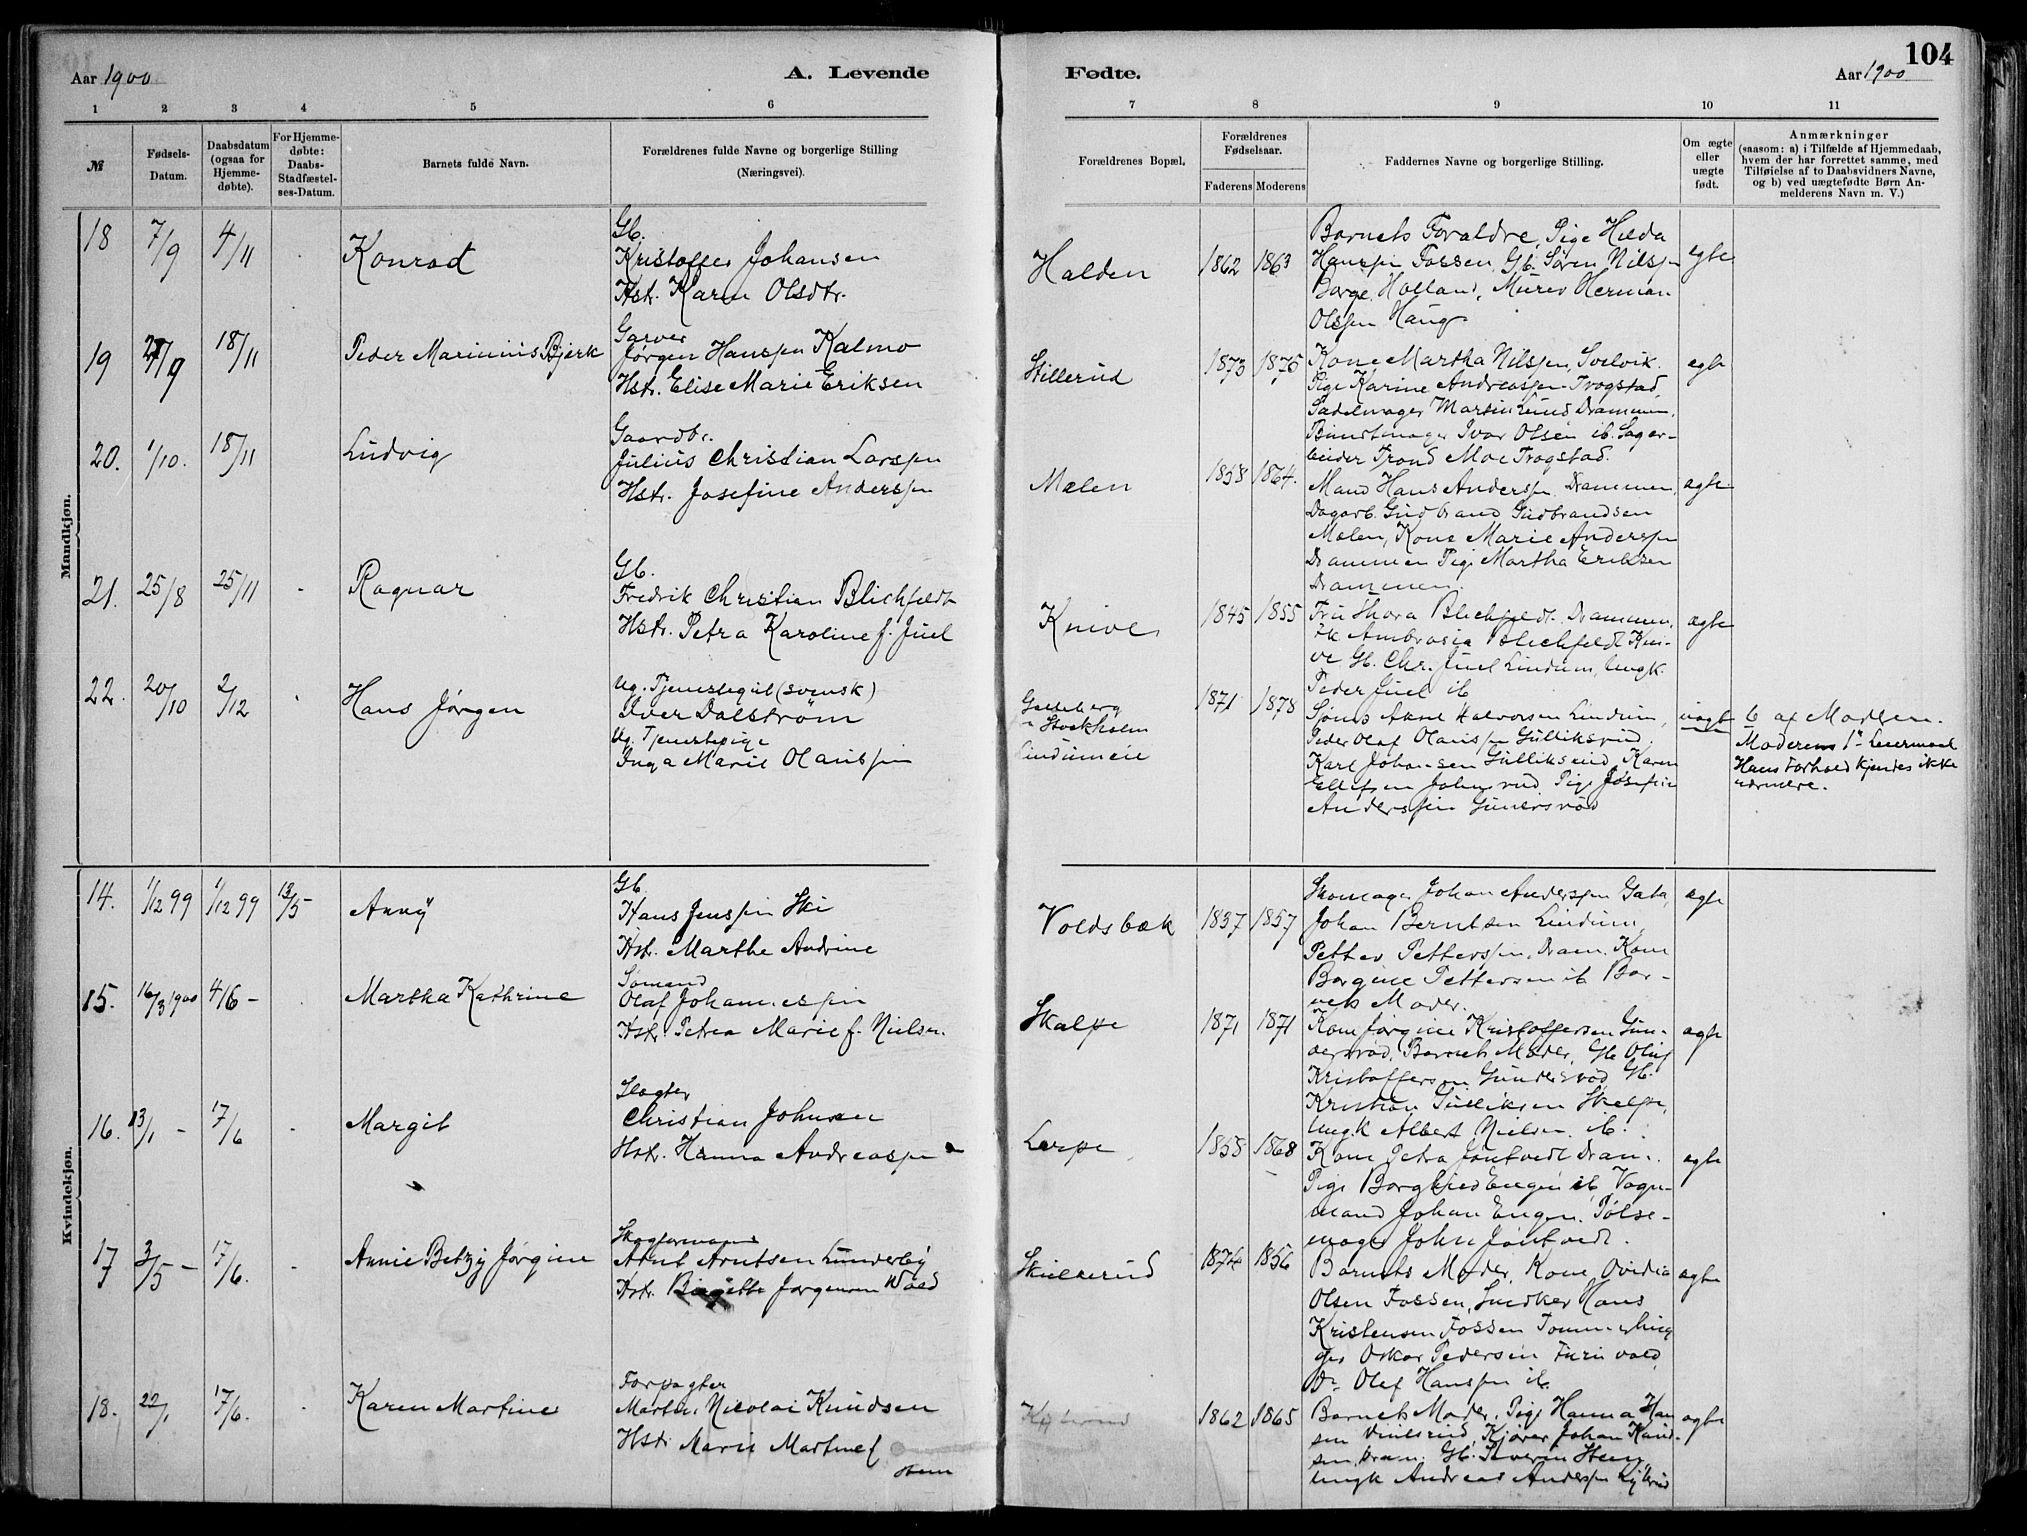 Aar 1900
A. Levende
Fødte.
Aar 1900
104
1 2 3 4 5 6 7 8 9 10 11
№
Fødsels-Datum.
Daabsdatum (ogsaa for Hjemme-døbte).
For Hjemme-døbte: Daabs-Stadfæstel-ses-Datum.
Barnets fulde Navn.
Forældrenes fulde Navne og borgerlige Stilling
(Næringsvei).
Forældrenes Bopæl.
Forældrenes Fødselsaar.
Faderens Moderens
Faddernes Navne og borgerlige Stilling.
Om ægte eller uægte født.
Anmærkninger
(saasom: a) i Tilfælde af Hjemmedaab,
hvem der har forrettet samme, med
Tilføielse af to Daabsvidners Navne,
og b) ved uægtefødte Børn An-
melderens Navn m. V.)
Mandkjøn.
18 7/9 4/11 Konrad
Gb.
Kristoffer Johansen
Hst. Karen Olsdtr.
Halden 1862 1863
Barnets Forældre, Pige Hilda
Hanssen Fossen, Gb. Søren Nilssen
Borge, Holland, Murer Herman
Olssen Haug
egte
19 27/9 18/11 Peder Marinius Bjerk
Garver
Jørgen Hanssen Kalmo
Hstr. Elise Marie Eriksen
Stillerud 1873 1875
Kone Martha Nilssen, Svelvik.
Pige Karine Andreassen Trogstad
Sadelmager Martin Lund Drammen,
Buntmager Ivar Olsen ib. Sagar-
beider Trond Moe Trogstad.
egte
20. 1/10. 18/11 Ludvig
Gaardbr.
Julius Christian Larssen
Hstr. Josefine Anderssen
Mælen 1858 1864.
Mand Hans Anderssen Drammen,
Dagarb. Gudbrand Gudbrandsen
Mælen, Kone Marie Anderssen
Drammen Pige Martha Eriksen
Drammen.
ægte
21. 25/8 25/11 Ragnar
Gb.
Fredrik Christian Blichfeldt
Hstr. Petra Karoline f. Juel
Knive 1845 1855
Fru Thora Blichfeldt Drammen,
Frk Ambrosia Blichfeldt Kni-
ve Gb. Chr. Juel Lindum, Ungk.
Peder Juel ib
ægte
22. 20/10 2/12 Hans Jørgen
Ug. Tjenestegut (svensk)
Iver Dalstrøm
Ug. Tjenestepige
Inga Marie Olaussen
Galleberg
fr Stockholm
Lindumeie
1871 1878
Halvorsen Lindum,
Peder Olaf Olaussen Gulliksrud
Karl Johansen Gulliksrud, Karen
Ellefsen Johnsrud, Pige Josefine
Anderssen Gunersrød
uægte
b af Modren.
Moderens 1ste Leiermaal
Hans Forhold kjendes ikke
nærmere.
Kvindekjøn.
14. 1/12 99 1/12 99 13/5 Anny
Gb.
Hans Jenssen Ski
Hst. Marthe Andrine
Voldsbæk 1837 1857
Skomager Johan Anderssen Gata,
Johan Berntsen Lindum,
Petter Petterssen, Dram. Kone
Borgine Pettersen ib Bar-
nets Moder.
ægte
15. 16/3 1900 4/6 - Martha Kathrine
Sømand
Olaf Johannessen
Hst. Petra Marie f. Nielsen.
Skalpe 1871 1871
Kone Jørgine Kristoffersen Gun-
dersrød, Barnets Moder, Gb Oluf
Kristoffersen Gundersrød, Gb.
Kristian Gulliksen Skalpe,
Ungk Albert Nielsen ib.
ægte
16. 13/1 - 17/6 Margit
Slagter
Christian Johnsen
Hstr. Hanna Andreassen
Lerpe 1858 1868
Kone Petra Jøntvedt Dram.
Pige Borghild Engen ib. Vogn-
mand Johan Engen. Pølse-
mager John Jøntvedt.
egte
17 3/5 - 17/6. Annie Betzy Jørgine
Skogformand
Arnt Arntsen Lunderby
Hstr. Birgitte Jørgensen Wold
Skulserud 1874 1856
Barnets Moder, Kone Ovidia
Olsen Fossen, Snedker Hans
Kristensen Fossen Tommerhug
ger Oskar Pedersen Furuvold
Do Olaf Hanssen ib.
ægte
18. 22/1 17/6. Karen Martine
Forpagter
Martin Nicolai Knudsen
Hstr Marie Martine f
Steen
1862 1865
Barnets Moder, Pige Hanna Han
sen Vinlsrud, Kjører Johan Knud-
sen, Dram. Gb. Severin Steen,
Ungk Andreas Anderssen Lykrud
ægte